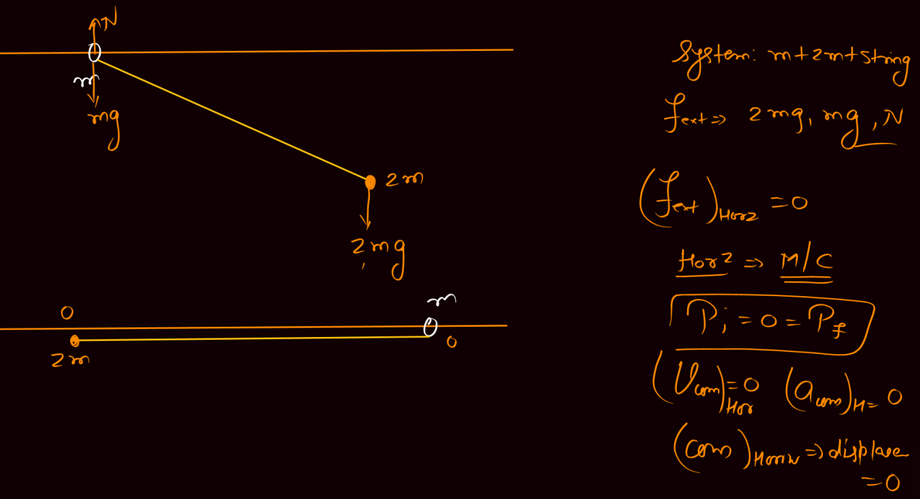 N
m
mg
2m
2mg
0
m
2m
0
System: m+2m+string
fext ⇒ 2mg, mg, N
(fext)Horz = 0
Horz ⇒ M/C
Pi = 0 = Pf
(Vcom)Hor = 0 (acom)H = 0
(com)Horiz ⇒ displace = 0